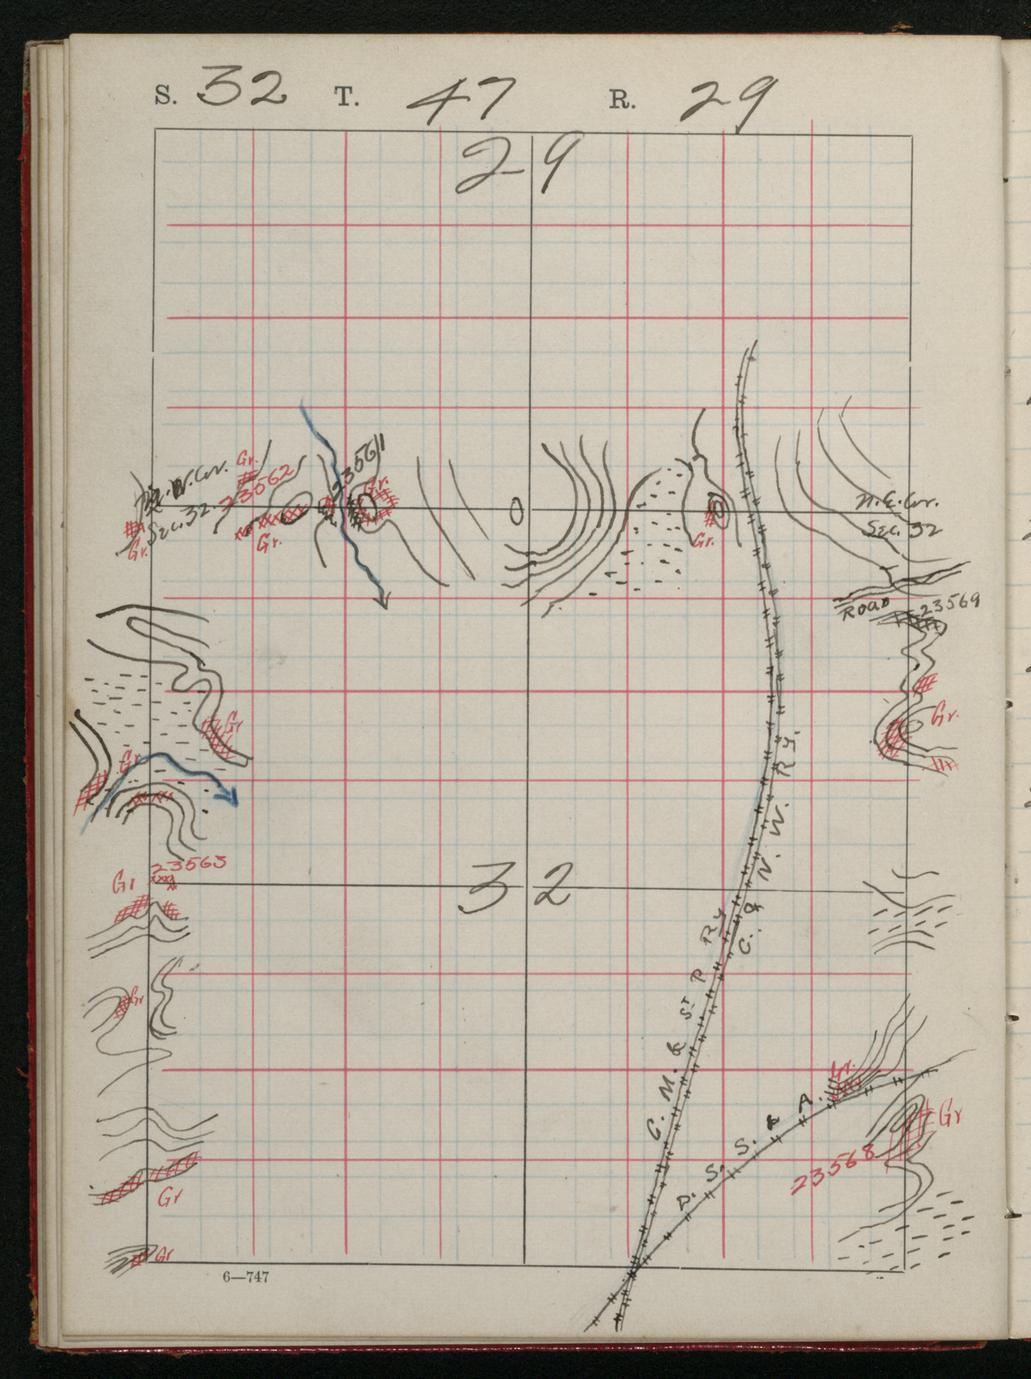 S. 32 T. 47 R. 29
29
N.W. Cor.
Sec. 32.
Gr.
23562
Gr.
Gr.
23561
Gr.
Gr.
N.E. Cor.
Sec. 32
ROAD
23569
Gr
Gr.
Gr.
C. & N. W. RY.
23563
Gr
32
C. M. & ST P RY
Gr
Gr.
D. S. S. & A.
Gr
23568
Gr
Gr
6—747